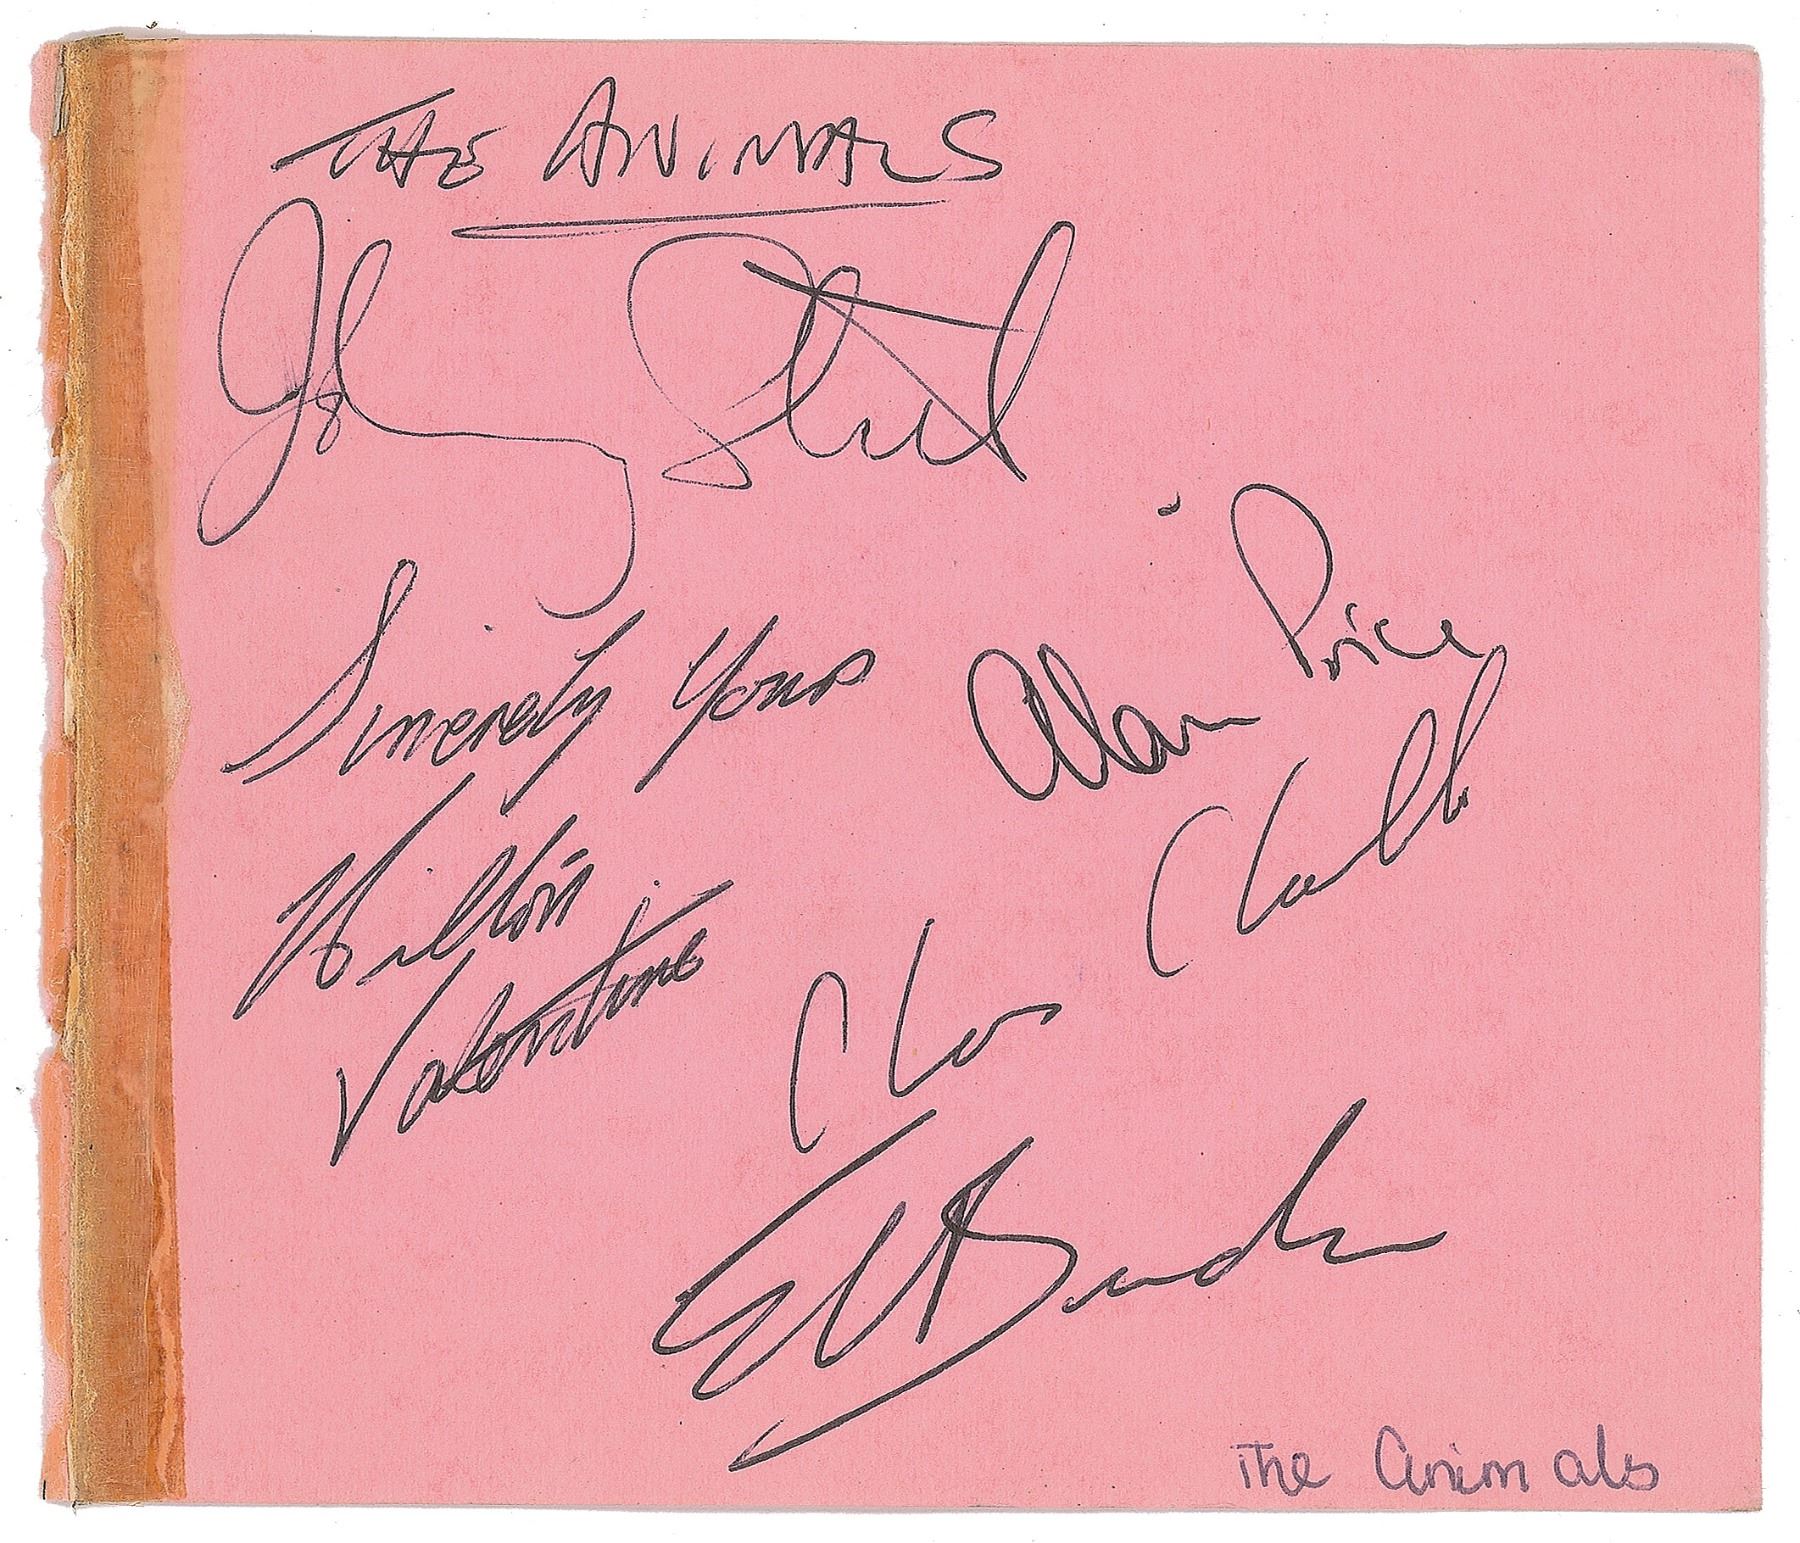 THE ANIMALS
Johnny Steel
Alan Price
Sincerely Yours
Hilton
Valentine
Chas Chandler
Eric Burdon
The Animals